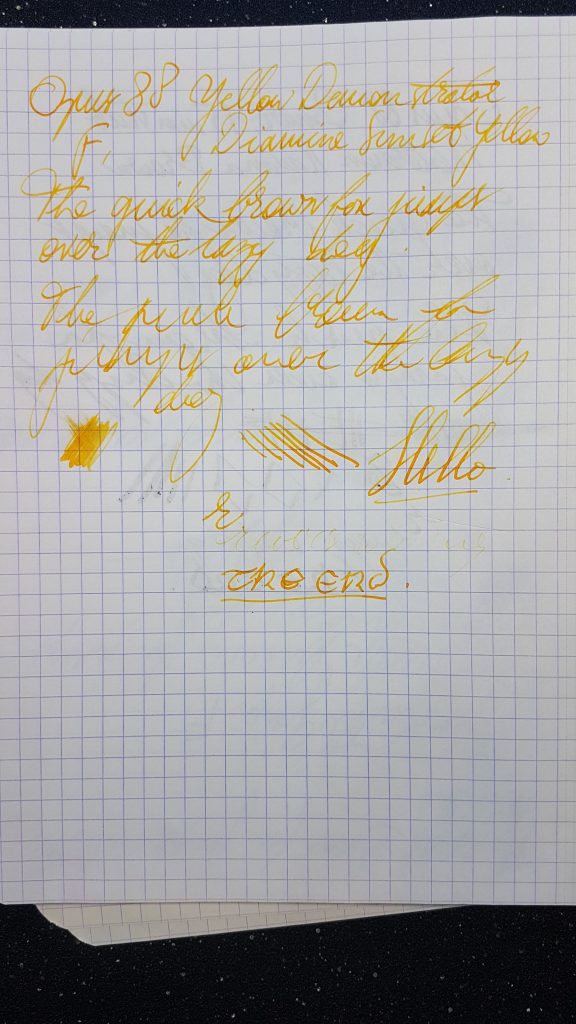 Opus 88 Yellow Demonstrator
F, Diamine Sunset Yellow
The quick brown fox jumps
over the lazy dog.
The brown
jumps over the lazy
dog
Hello
The End.